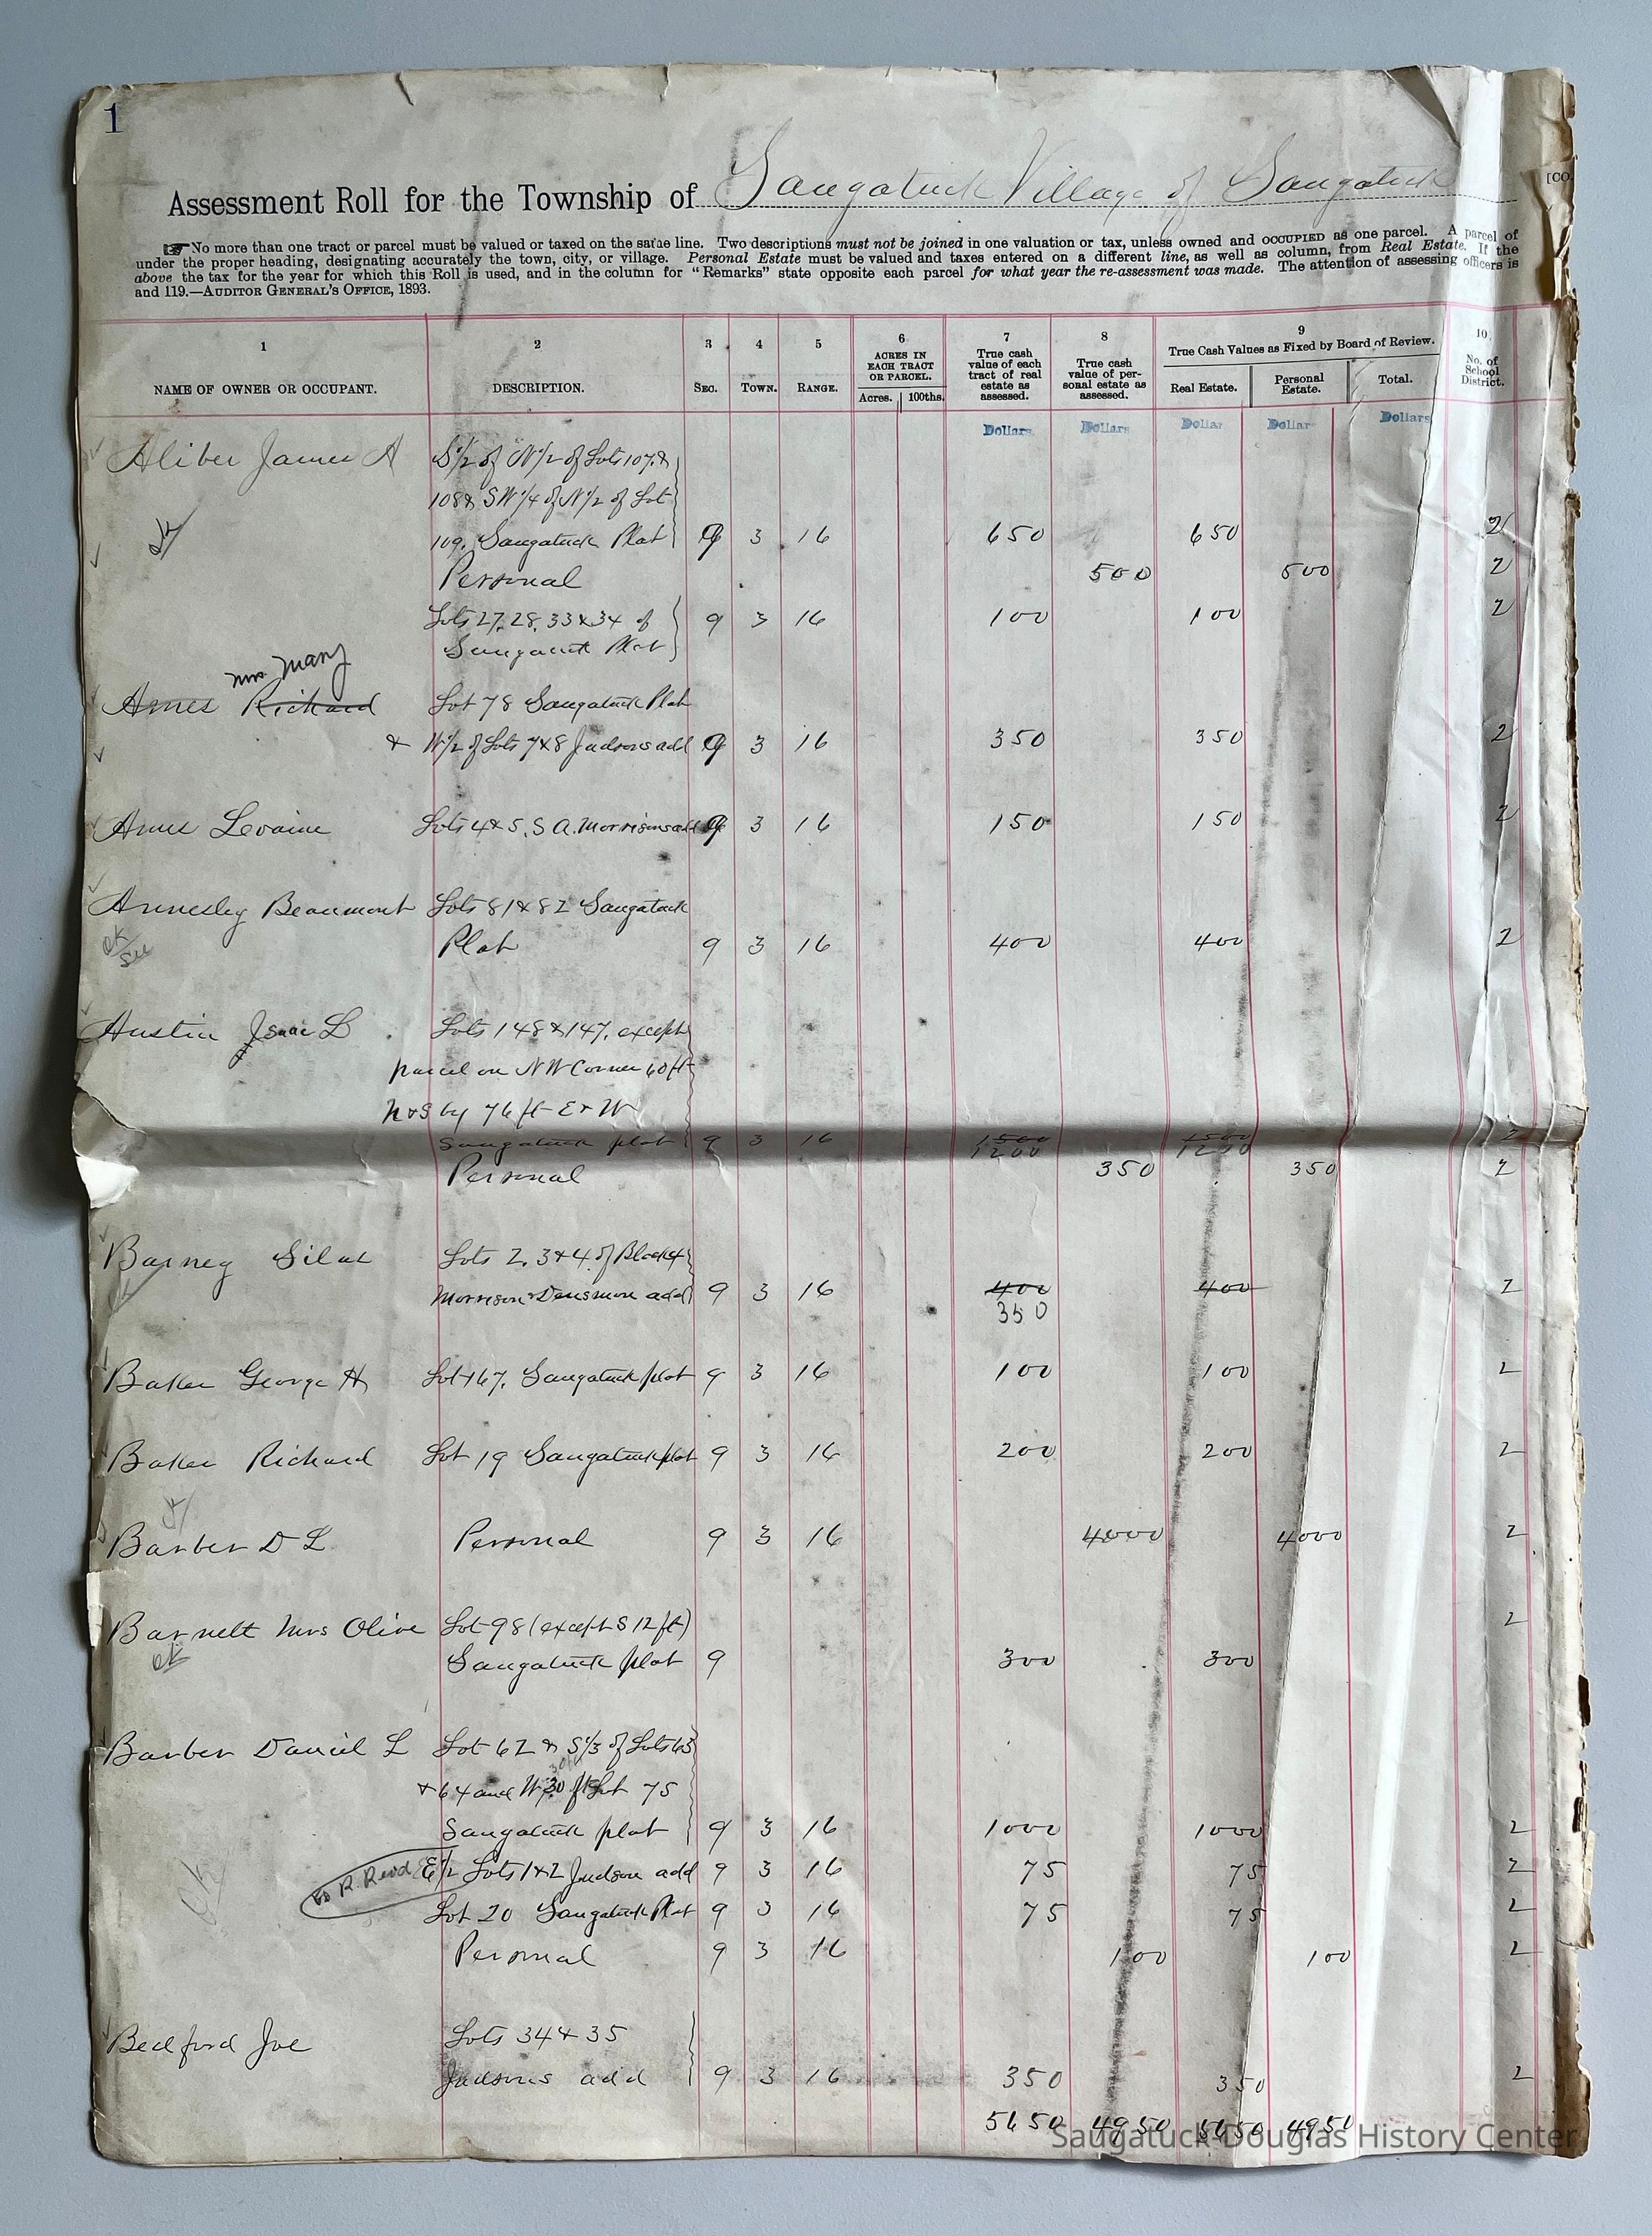 1
Assessment Roll for the Township of Saugatuck Village of Saugatuck
[CO
☞No more than one tract or parcel must be valued or taxed on the same line. Two descriptions must not be joined in one valuation or tax, unless owned and OCCUPIED as one parcel. A parcel of
under the proper heading, designating accurately the town, city, or village. Personal Estate must be valued and taxes entered on a different line, as well as column, from Real Estate. If the
above the tax for the year for which this Roll is used, and in the column for "Remarks" state opposite each parcel for what year the re-assessment was made. The attention of assessing officers is
and 119.—AUDITOR GENERAL'S OFFICE, 1893.
1 2 3 4 5 6 7 8 9 10
NAME OF OWNER OR OCCUPANT. DESCRIPTION. SEC. TOWN. RANGE. ACRES IN EACH TRACT OR PARCEL. Acres. 100ths. True cash value of each tract of real estate as assessed. True cash value of personal estate as assessed. True Cash Values as Fixed by Board of Review. Real Estate. Personal Estate. Total. No. of School District.
Dollars Dollars Dollar Dollar Dollars
Aliber James A S 1/2 of N 1/2 of Lots 107 &
108 & SW 1/4 of N 1/2 of Lot
109, Saugatuck Plat 9 3 16 650 650 2
Personal 500 500 2
Lots 27, 28, 33 & 34 of 9 3 16 100 100 2
Saugatuck Plat
Mrs. Mary
Ames Richard Lot 78 Saugatuck Plat
& W 1/2 of Lots 7 & 8 Judsons add 9 3 16 350 350 2
Ames Levaine Lots 4 & 5, S A. Morrisons add 9 3 16 150 150 2
Annesley Beaumont Lots 81 & 82 Saugatuck
ok Plat 9 3 16 400 400 2
Austin Isaac L Lots 148 & 147, except
parcel on NW Corner 60 ft
N & S by 76 ft E & W
Saugatuck plat 9 3 16 1500 1500 2
1200 1200
Personal 350 350 2
Barney Silas Lots 2, 3 & 4 of Block 4
Morrison & Densmore add 9 3 16 400 400 2
350
Baker George H Lot 167, Saugatuck plat 9 3 16 100 100 2
Baker Richard Lot 19 Saugatuck plat 9 3 16 200 200 2
Barber D L Personal 9 3 16 4000 4000 2
Barnett Mrs Olive Lot 98 (except S 12 ft) 2
ok Saugatuck plat 9 300 300
Barber Daniel L Lot 62 & S 1/3 of Lots 63
& 64 and W 30 ft Lot 75
Saugatuck plat 9 3 16 1000 1000 2
ok to R. Read E 1/2 Lots 1 & 2 Judson add 9 3 16 75 75 2
Lot 20 Saugatuck Plat 9 3 16 75 75 2
Personal 9 3 16 100 100 2
Bedford Joe Lots 34 & 35
Judsons add 9 3 16 350 350 2
5650 4950 5650 4950
Saugatuck-Douglas History Center